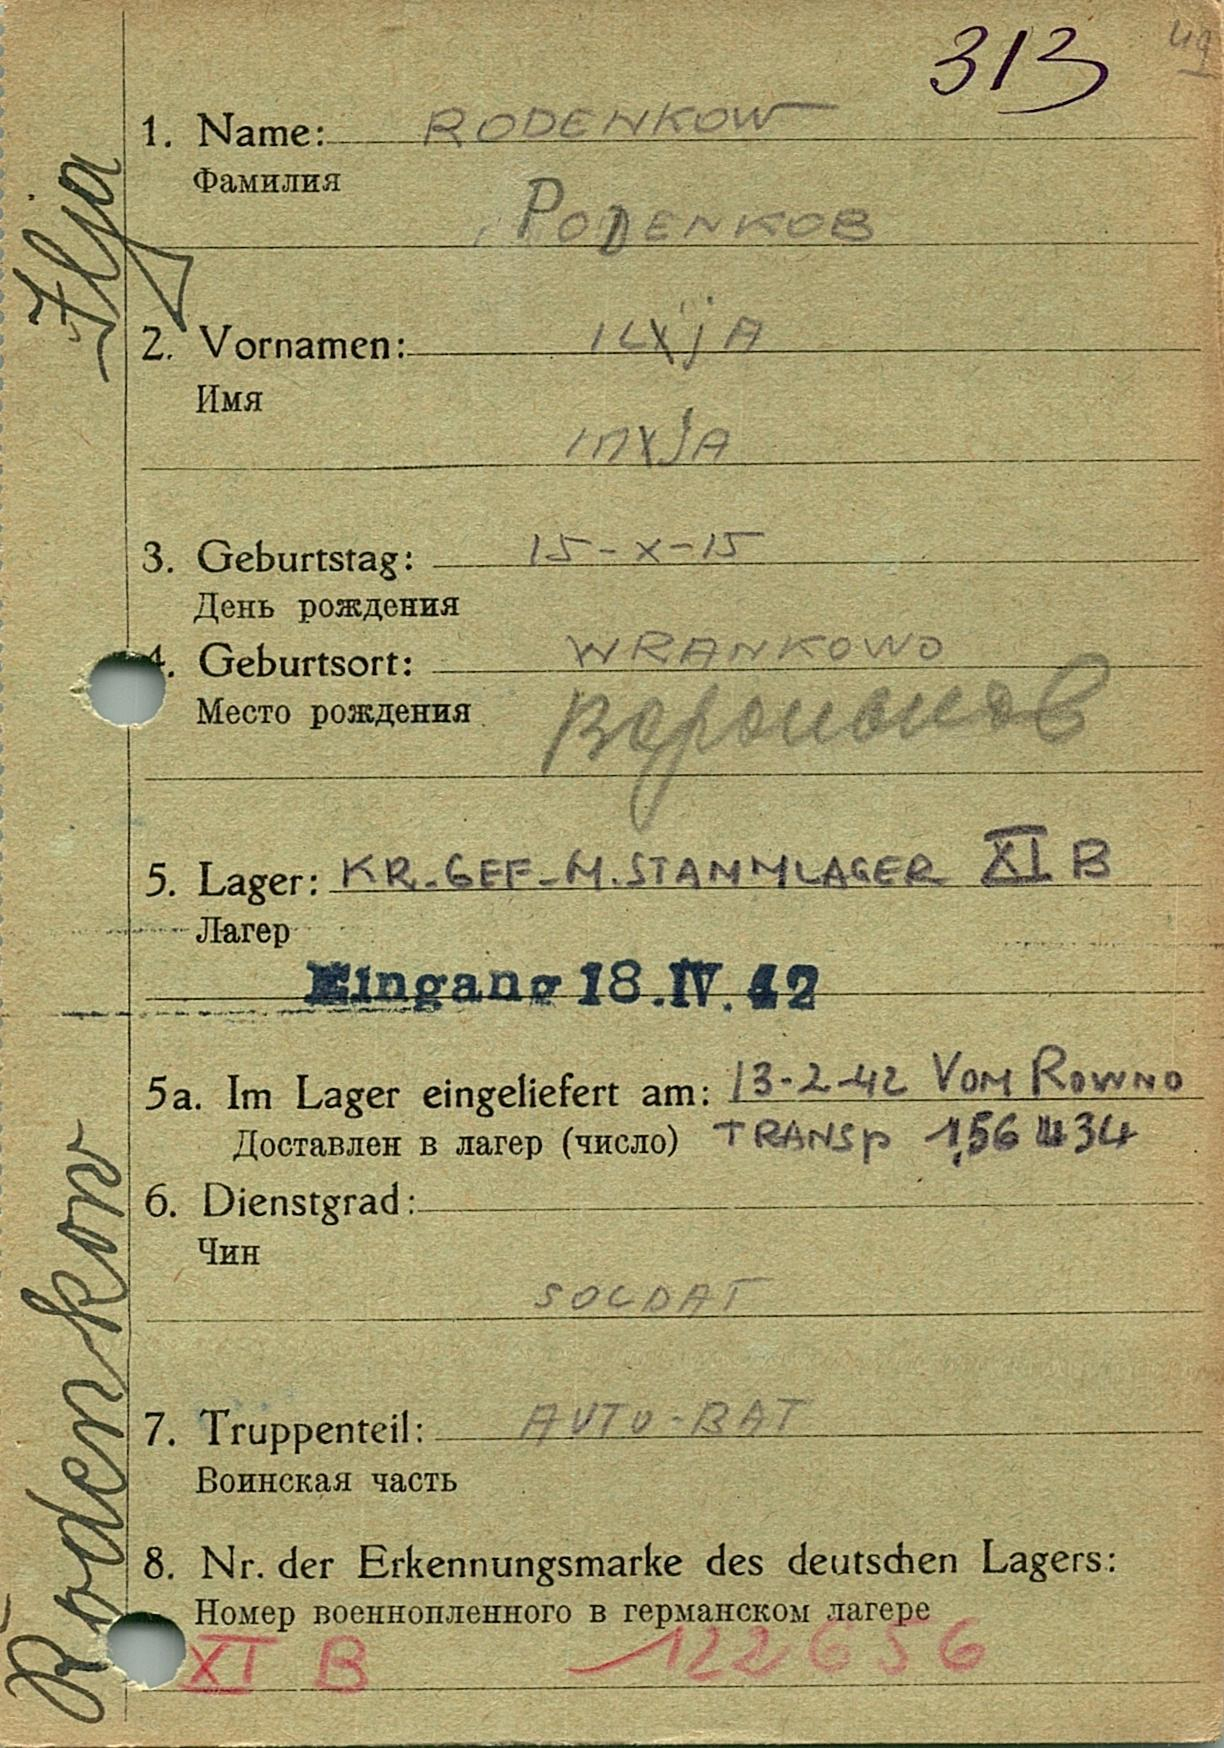 313
49
1. Name: RODENKOW
Фамилия
РОДЕNКОВ
2. Vornamen: ILXjA
Имя
3. Geburtstag: 15-X-15
День рождения
4. Geburtsort: WRANKOWO
Место рождения
5. Lager: KR.GEF-M.STAMMLAGER XI B
Лагер
Eingang 18.IV.42
5a. Im Lager eingeliefert am: 13-2-42 VOM ROWNO
Доставлен в лагер (число) TRANSP
6. Dienstgrad:
Чин
SOLDAT
7. Truppenteil: AUTO-BAT
Воинская часть
8. Nr. der Erkennungsmarke des deutschen Lagers:
Номер военнопленного в германском лагере
XI B 122656
Rodenkow Ilja